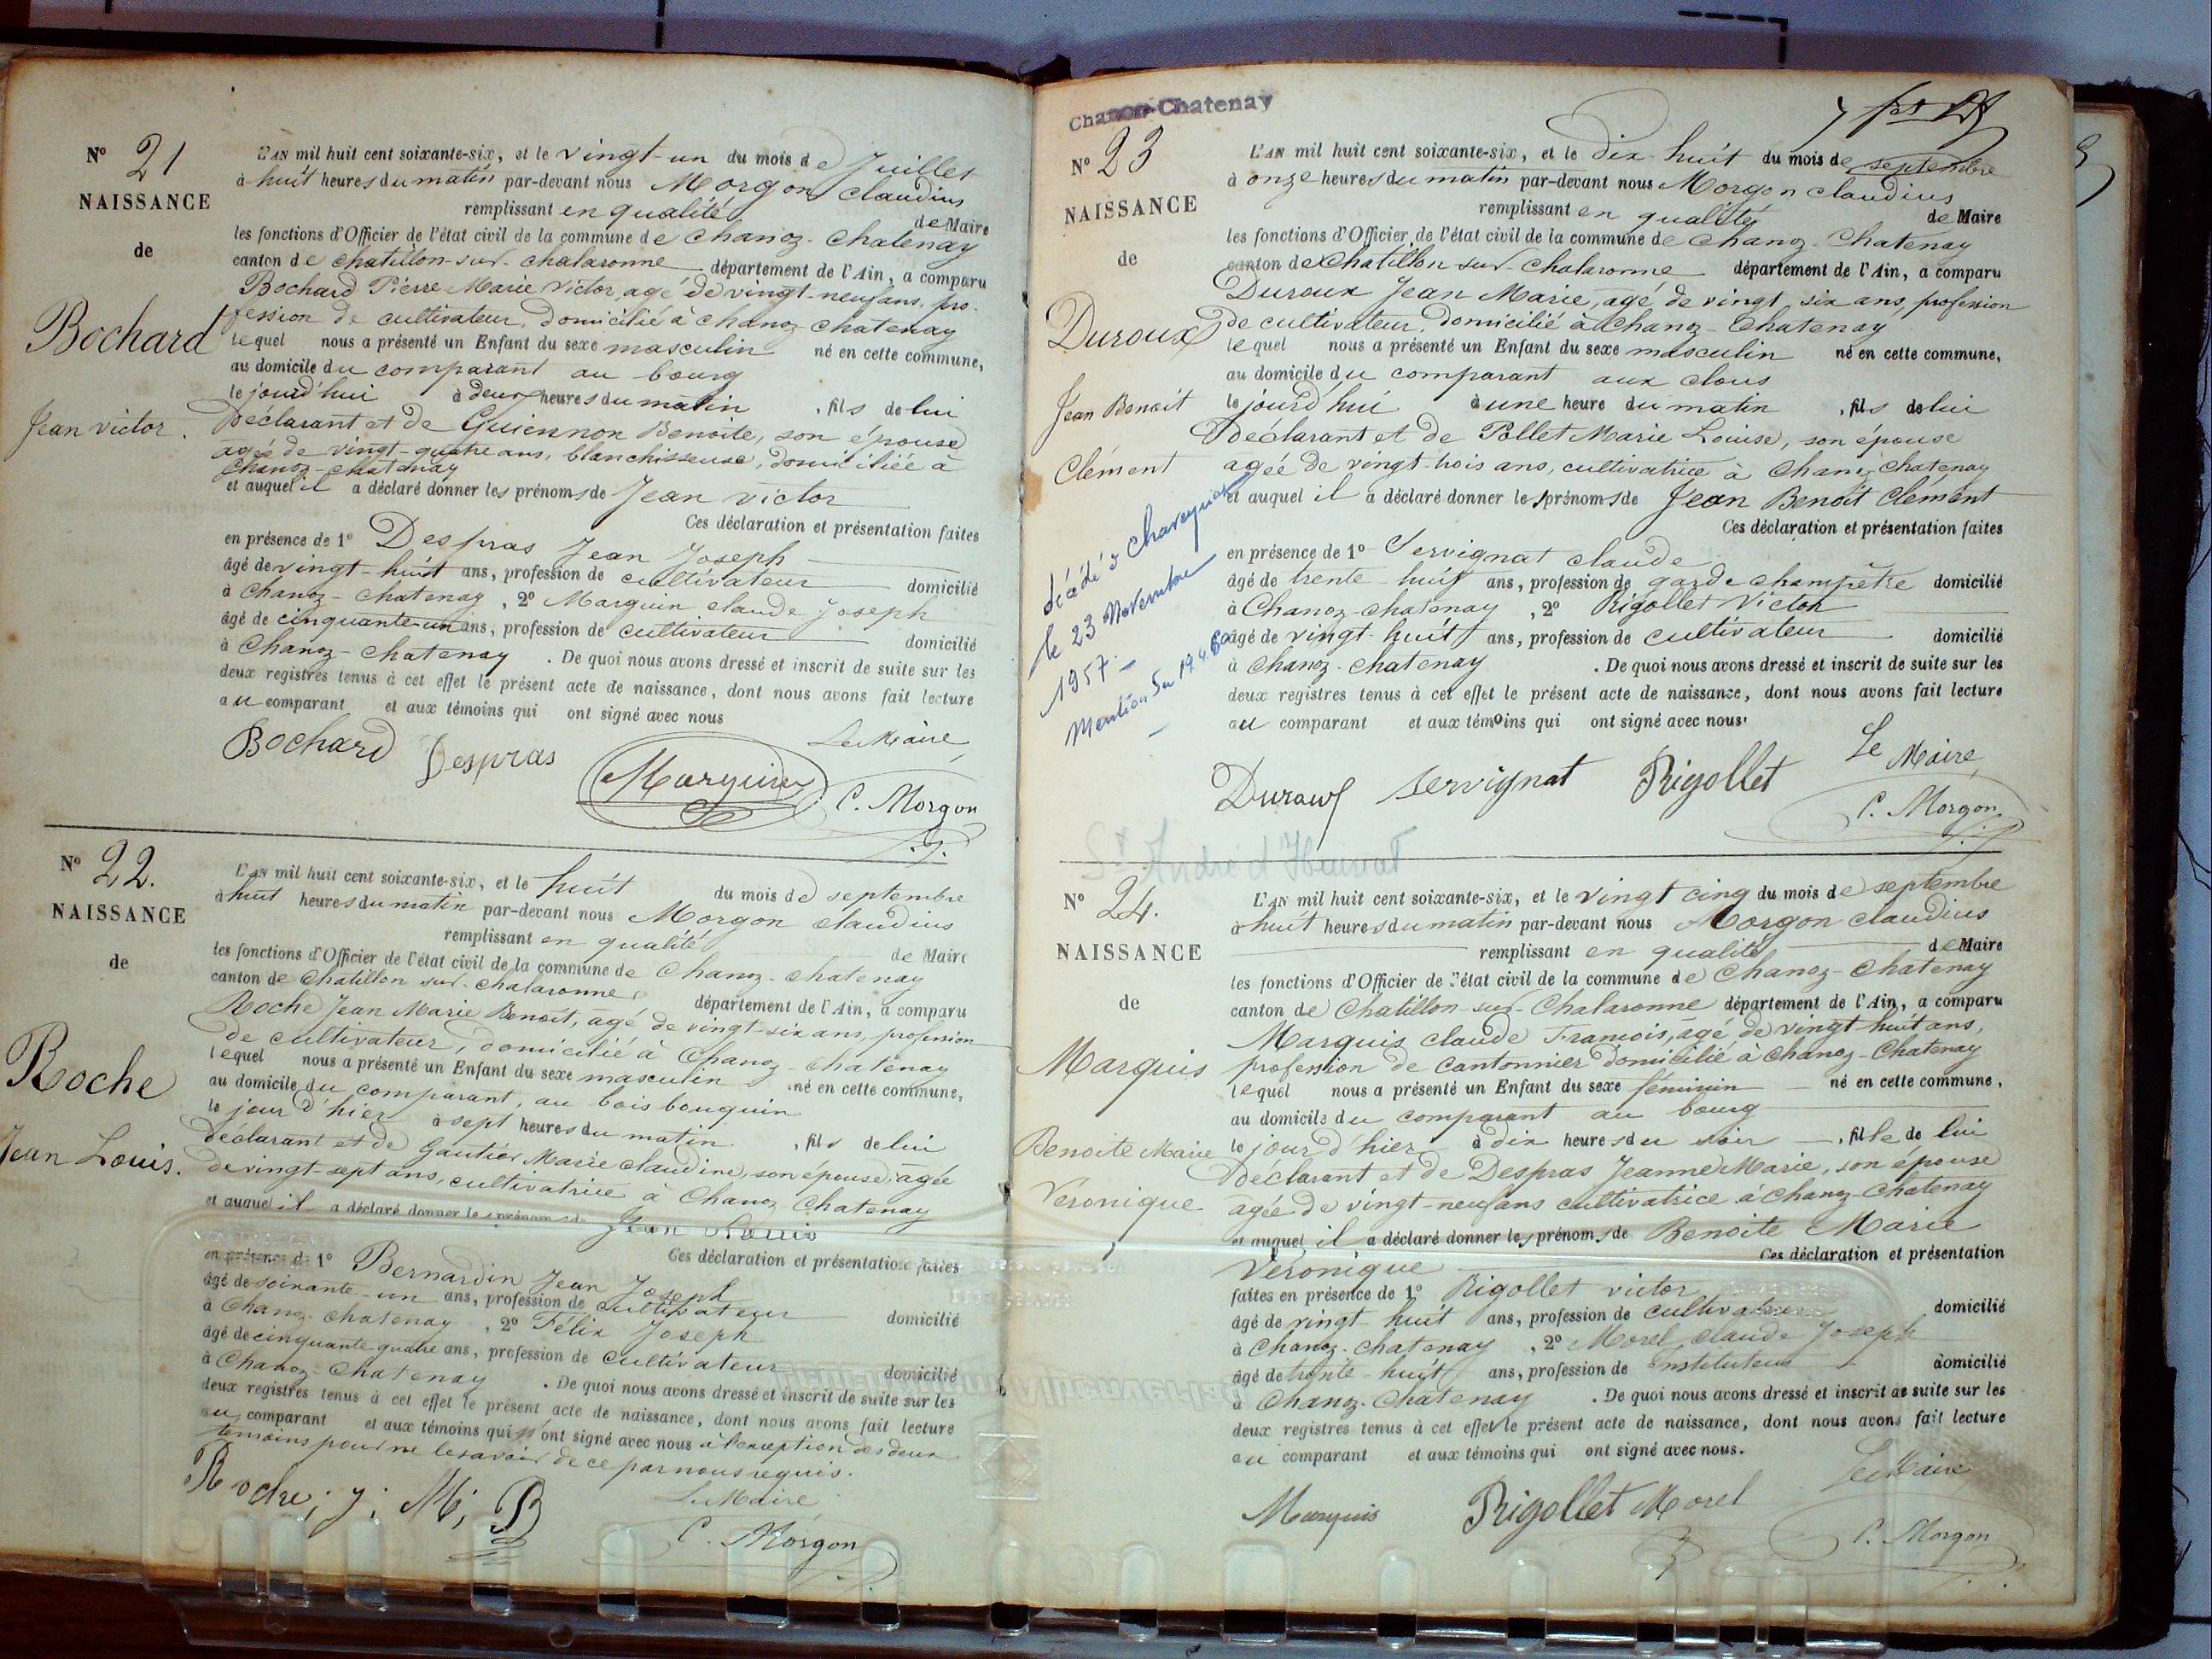 N° 21
NAISSANCE
de
Bochard
Jean victor.
L'AN mil huit cent soixante-six, et le vingt-un du mois de Juillet
à huit heures du matin par-devant nous Morgon claudius
remplissant en qualité de Maire
les fonctions d'Officier de l'état civil de la commune de Chanoz-Chatenay
canton de chatillon-sur-chalaronne département de l'Ain, a comparu
Bochard Pierre Marie Victor, agé de vingt-neuf ans, pro-
fession de cultivateur, domicilié à chanoz chatenay
lequel nous a présenté un Enfant du sexe masculin né en cette commune,
au domicile du comparant au bourg
le jourd'hui à deux heures du matin , fils de lui
Déclarant et de Guiennon Benoite, son épouse
agée de vingt-quatre ans, blanchisseuse, domiciliée à
Chanoz-chatenay
et auquel il a déclaré donner les prénoms de Jean victor
Ces déclaration et présentation faites
en présence de 1° Despras Jean Joseph
âgé de vingt-huit ans, profession de cultivateur domicilié
à Chanoz-chatenay, 2° Marguin claude Joseph
âgé de cinquante-un ans, profession de cultivateur domicilié
à Chanoz-chatenay. De quoi nous avons dressé et inscrit de suite sur les
deux registres tenus à cet effet le présent acte de naissance, dont nous avons fait lecture
au comparant et aux témoins qui ont signé avec nous
Le Maire
Bochard Despras Marguin C. Morgon
N° 22.
NAISSANCE
de
Roche
Jean Louis.
L'AN mil huit cent soixante-six, et le huit du mois de septembre
à huit heures du matin par-devant nous Morgon claudius
remplissant en qualité de Maire
les fonctions d'Officier de l'état civil de la commune de Chanoz-chatenay
canton de Chatillon sur-chalaronne département de l'Ain, a comparu
Roche Jean Marie Benoit, âgé de vingt-six ans, profession
de cultivateur, domicilié à Chanoz-chatenay
lequel nous a présenté un Enfant du sexe masculin né en cette commune,
au domicile du comparant, au bois bouquin
le jour d'hier à sept heures du matin , fils de lui
déclarant et de Gautier Marie claudine, son épouse, agée
de vingt-sept ans, cultivatrice à Chanoz Chatenay
et auquel il a déclaré donner les prénoms de Jean Louis
Ces déclaration et présentation faites
en présence de 1° Bernardin Jean Joseph
âgé de soixante-un ans, profession de cultivateur domicilié
à Chanoz-chatenay, 2° Félix Joseph
âgé de cinquante quatre ans, profession de cultivateur domicilié
à Chanoz-Chatenay. De quoi nous avons dressé et inscrit de suite sur les
deux registres tenus à cet effet le présent acte de naissance, dont nous avons fait lecture
au comparant et aux témoins qui ont signé avec nous à l'exception des deux
temoins pour ne le savoir de ce par nous requis.
Le Maire
Roche, J; M; B C. Morgon
Chanoz-Chatenay
N° 23
NAISSANCE
de
Duroux
Jean Benoit
Clément
décédé à Chaveyriat
le 23 Novembre
1957.
Mention du 19.4.60
L'AN mil huit cent soixante-six, et le dix huit du mois de septembre
à onze heures du matin par-devant nous Morgon claudius
remplissant en qualité de Maire
les fonctions d'Officier de l'état civil de la commune de Chanoz-Chatenay
canton de Chatillon-sur-Chalaronne département de l'Ain, a comparu
Duroux Jean Marie, agé de vingt six ans, profession
de cultivateur, domicilié à Chanoz-Chatenay
lequel nous a présenté un Enfant du sexe masculin né en cette commune,
au domicile du comparant aux clous
le jourd'hui à une heure du matin , fils de lui
Déclarant et de Pollet Marie Louise, son épouse
agée de vingt trois ans, cultivatrice à Chanoz chatenay
et auquel il a déclaré donner les prénoms de Jean Benoît Clément
Ces déclaration et présentation faites
en présence de 1° Servignat claude
âgé de trente-huit ans, profession de garde champêtre domicilié
à Chanoz-chatenay, 2° Rigollet Victor
âgé de vingt-huit ans, profession de cultivateur domicilié
à Chanoz-chatenay. De quoi nous avons dressé et inscrit de suite sur les
deux registres tenus à cet effet le présent acte de naissance, dont nous avons fait lecture
au comparant et aux témoins qui ont signé avec nous.
Le Maire
Duroux servignat Rigollet C. Morgon
St André d'Huiriat
N° 24.
NAISSANCE
de
Marquis
Benoite Marie
Véronique
L'AN mil huit cent soixante-six, et le vingt cinq du mois de septembre
à huit heures du matin par-devant nous Morgon claudius
remplissant en qualité de Maire
les fonctions d'Officier de l'état civil de la commune de Chanoz-Chatenay
canton de Chatillon-sur-Chalaronne département de l'Ain, a comparu
Marquis claude François, agé de vingt-huit ans,
profession de Cantonnier domicilié à Chanoz-Chatenay
lequel nous a présenté un Enfant du sexe féminin né en cette commune,
au domicile du comparant au bourg
le jour d'hier à dix heures du soir , fille de lui
Déclarant et de Despras Jeanne Marie, son épouse
agée de vingt-neuf ans cultivatrice à Chanoz-Chatenay
et auquel il a déclaré donner les prénoms de Benoite Marie
Véronique Ces déclaration et présentation
faites en présence de 1° Rigollet victor
âgé de vingt huit ans, profession de cultivateur domicilié
à Chanoz-chatenay, 2° Morel claude Joseph
âgé de trente-huit ans, profession de Instituteur domicilié
à Chanoz-Chatenay. De quoi nous avons dressé et inscrit de suite sur les
deux registres tenus à cet effet le présent acte de naissance, dont nous avons fait lecture
au comparant et aux témoins qui ont signé avec nous.
Le Maire
Marquis Rigollet Morel C. Morgon